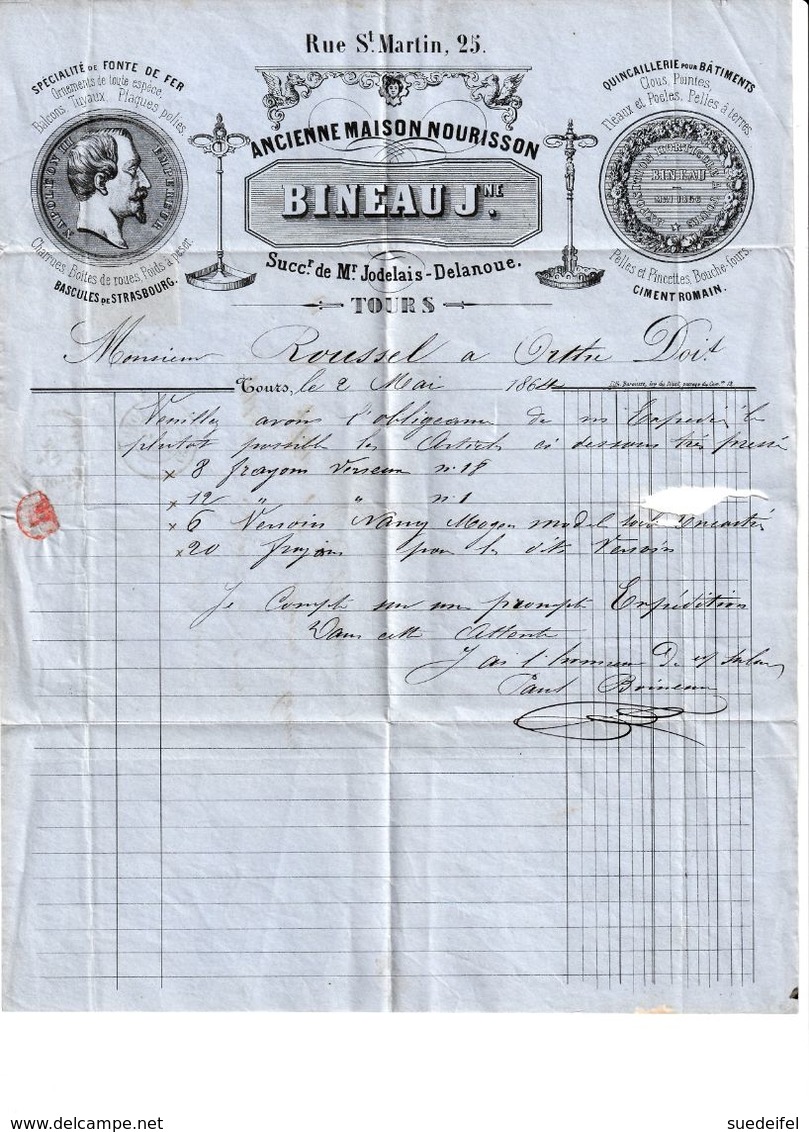 Rue St Martin, 25.
SPÉCIALITÉ DE FONTE DE FER
Ornements de toute espèce,
Balcons, Tuyaux, Plaques polies,
NAPOLEON III EMPEREUR
Charrues, Boîtes de roues, Poids à peser.
BASCULES DE STRASBOURG.
ANCIENNE MAISON NOURISSON
BINEAU JNE.
Succr. de Mr Jodelais-Delanoue.
TOURS
QUINCAILLERIE POUR BÂTIMENTS
Clous, Pointes,
Fléaux et Poeles, Pelles à terres
BINEAU
MAI 1856
Pelles et Pincettes, Bouche-fours.
CIMENT ROMAIN.
Monsieur Roussel a Orthe Doit
Tours, le 2 Mai 1864
Veuillez avoir l'obligeance de m Expedié le
plutot possible les Articles ci dessous très pressé
x 8 frayons Versoin n. 18
x 12 " " n. 1
x 6 Versoin Nancy model
x 20 frayons pour les dits Versoin
Je Compte sur une prompte Expédition
Dans cette Attente
J ai l'honneur De
Paul Boineau
suedeifel